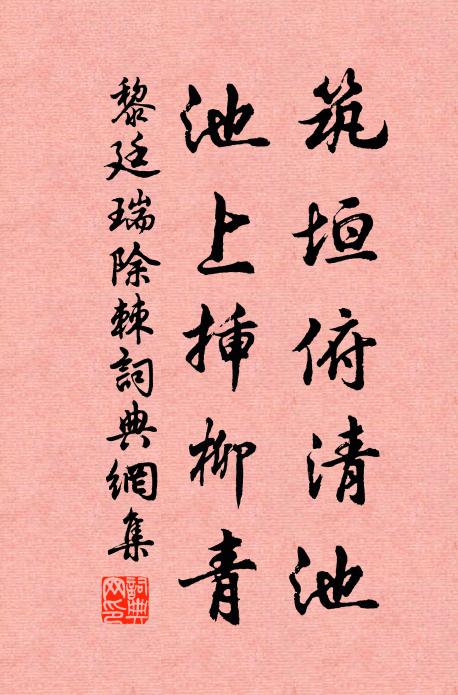 筑垣俯清池
池上挿柳青
黎廷瑞除棘詞典網集
詞典网印